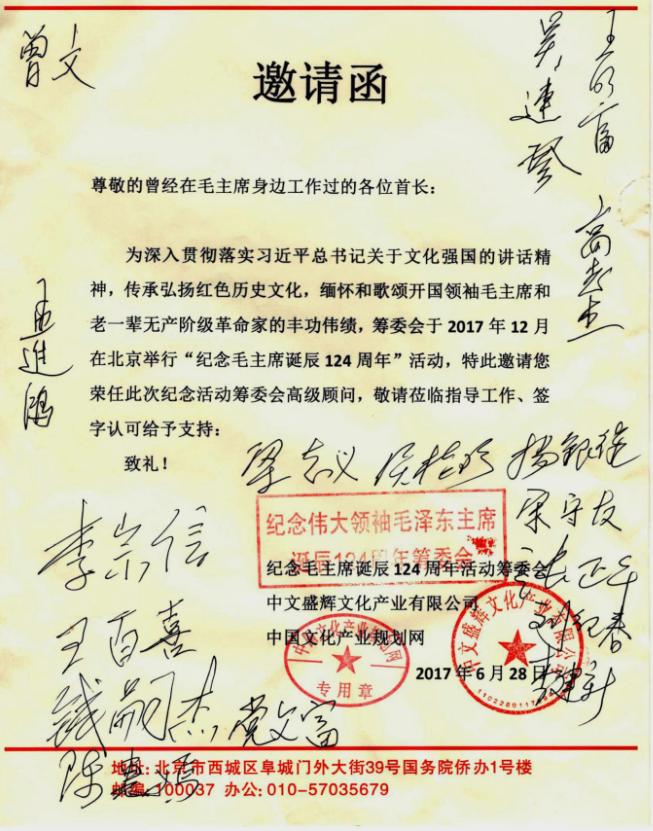 曾文
吴连登
邀请函
尊敬的曾经在毛主席身边工作过的各位首长:
为深入贯彻落实习近平总书记关于文化强国的讲话精
神，传承弘扬红色历史文化，缅怀和歌颂开国领袖毛主席和
老一辈无产阶级革命家的丰功伟绩，筹委会于 2017 年 12 月
在北京举行“纪念毛主席诞辰 124 周年”活动，特此邀请您
荣任此次纪念活动筹委会高级顾问，敬请莅临指导工作、签
字认可给予支持:
致礼！
孟进鸿
李宗信
王百喜
钱嗣杰
党文富
宋守友
纪念伟大领袖毛泽东主席
诞辰124周年筹委会
纪念毛主席诞辰 124 周年活动筹委会
中文盛辉文化产业有限公司
中国文化产业规划网
2017 年 6 月 28 日
中国文化产业规划网
专用章
中文盛辉文化产业有限公司
地址: 北京市西城区阜城门外大街39号国务院侨办1号楼
邮编: 100037 办公: 010-57035679